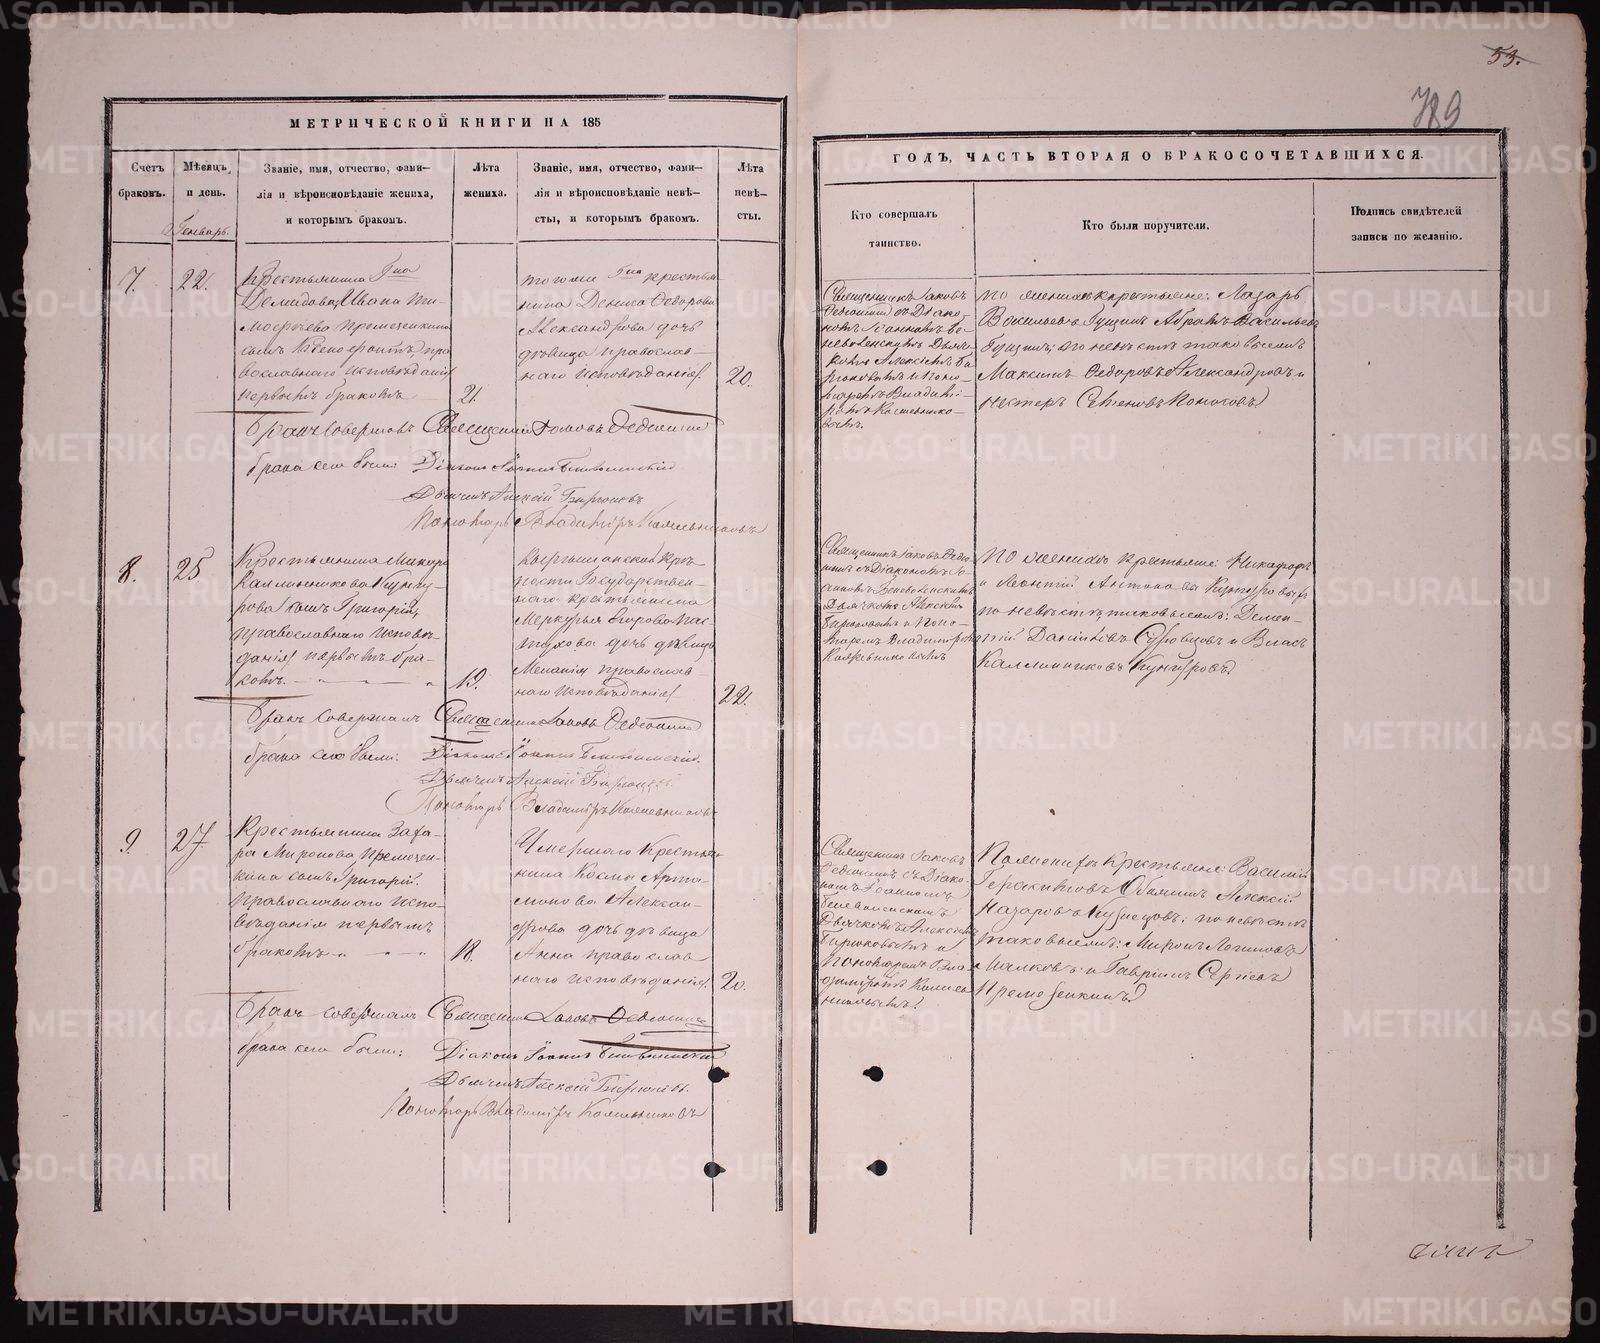 53.
789
МЕТРИЧЕСКОЙ КНИГИ НА 185
Счетъ браковъ.
Мѣсяцъ и день.
Званіе, имя, отчество, фами-
лія и вѣроисповѣданіе жениха,
и которымъ бракомъ.
Лѣта жениха.
Званіе, имя, отчество, фами-
лія и вѣроисповѣданіе невѣ-
сты, и которымъ бракомъ.
Лѣта невѣ-
сты.
Генварь.
7.
22.
Крестьянина Гна
Демидова Ивана Ти-
сынъ Ксенофонтъ, пра
вославнаго исповѣданія
первымъ бракомъ
21.
тогоже Гна крестья
нина Дениса Федорова
Александрова дочь
дѣвица православ-
наго исповѣданія.
20.
Бракъ совершалъ Священникъ Іаковъ
брака сего были: Діаконъ Іоаннъ
Дьячекъ Алексій Бирюковъ
Пономарь Владиміръ
8.
25.
Крестьянина
Каллиникова Кунгу-
рова сынъ Григорій,
православнаго исповѣ-
данія первымъ бра-
комъ.
19.
Государствен-
наго крестьянина
Меркурья Егорова Пас-
тухова дочь дѣвица
Меланія православ-
наго исповѣданія
22.
Бракъ совершалъ Священникъ Іаковъ
брака сего были: Діаконъ Іоаннъ
Дьячекъ Алексій Бирюковъ
Пономарь Владиміръ
9.
27.
Крестьянина Заха-
ра Миронова Премезен-
кина сынъ Григорій.
православнаго испо-
вѣданія первымъ
бракомъ
18.
Умершаго Крестья
нина Космы Арта-
монова Алексан-
дрова дочь дѣвица
Анна православ
наго исповѣданія.
20.
Бракъ совершалъ Священникъ Іаковъ
брака сего были: Діаконъ Іоаннъ
Дьячекъ Алексій Бирюковъ.
Пономарь Владиміръ
ГОДЪ, ЧАСТЬ ВТОРАЯ О БРАКОСОЧЕТАВШИХСЯ.
Кто совершалъ
таинство.
Кто были поручители.
Подпись свидѣтелей
записи по желанію.
Священникъ Іаковъ
съ Діако-
номъ Іоанномъ
Дьяч-
комъ Алексіемъ Би
рюковымъ и Поно-
маремъ Владимі-
ромъ
по женихѣ крестьяне: Лазарь
Васильевъ Гущинъ Абрамъ Васильевъ
Гущинъ; по невѣстѣ таковыежъ
Максимъ Федоровъ Александровъ и
Нестеръ Семеновъ
Священникъ Іаковъ
съ Діакономъ Іо-
анномъ
Дьячкомъ Алексіемъ
Бирюковымъ и Поно-
маремъ Владиміромъ
по женихѣ крестьяне: Никифоръ
и Леонтій Антоновы Кунгуровы,
по невѣстѣ таковыежъ: Демен-
тій Даниловъ Суровцовъ и Власъ
Каллиниковъ Кунгуровъ.
Священникъ Іаковъ
съ Діако-
номъ Іоанномъ
Дьячкомъ Алексіемъ
Бирюковымъ и
Пономаремъ Вла
диміромъ
По женихѣ Крестьяне: Василій
Герасимовъ Алексѣй
Назаровъ Кузнецовъ; по невѣстѣ
таковыежъ: Миронъ Логиновъ
Малковъ и Гаврилъ Сергѣевъ
Премезенкинъ.
METRIKI.GASO-URAL.RU